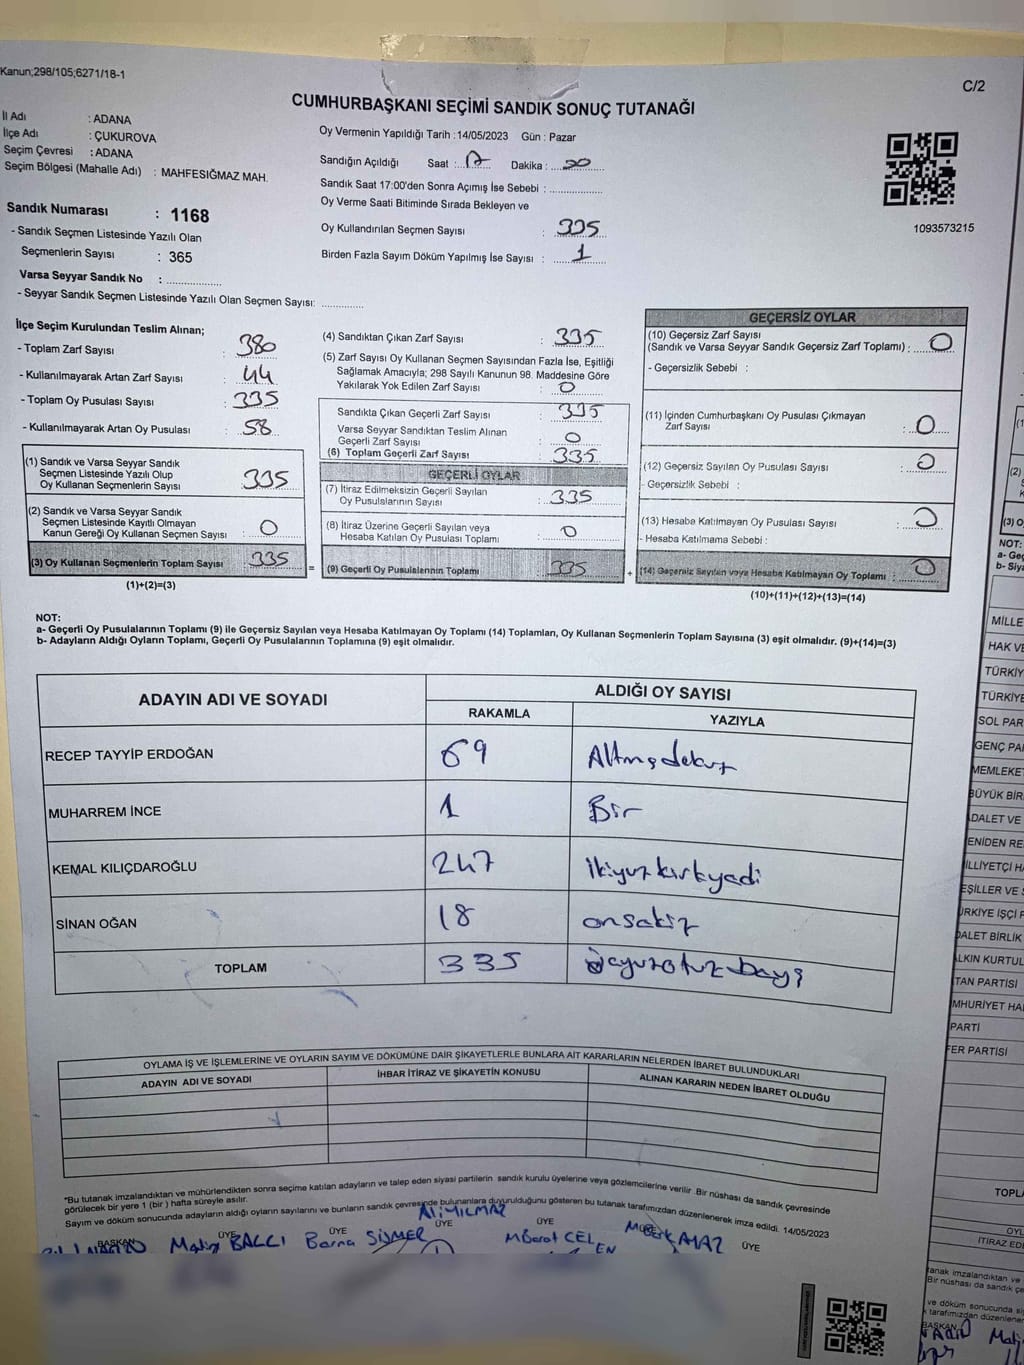 Kanun;298/105;6271/18-1
C/2
CUMHURBAŞKANI SEÇİMİ SANDIK SONUÇ TUTANAĞI
İl Adı : ADANA
İlçe Adı : ÇUKUROVA
Seçim Çevresi : ADANA
Seçim Bölgesi (Mahalle Adı) : MAHFESIĞMAZ MAH.
Sandık Numarası : 1168
- Sandık Seçmen Listesinde Yazılı Olan
Seçmenlerin Sayısı : 365
Varsa Seyyar Sandık No : ..................
- Seyyar Sandık Seçmen Listesinde Yazılı Olan Seçmen Sayısı: .............
Oy Vermenin Yapıldığı Tarih :14/05/2023 Gün : Pazar
Sandığın Açıldığı Saat : 17 Dakika : 20
Sandık Saat 17:00'den Sonra Açımış İse Sebebi : ...................
Oy Verme Saati Bitiminde Sırada Bekleyen ve
Oy Kullandırılan Seçmen Sayısı : 335
Birden Fazla Sayım Döküm Yapılmış İse Sayısı : 1
1093573215
İlçe Seçim Kurulundan Teslim Alınan;
- Toplam Zarf Sayısı : 380
- Kullanılmayarak Artan Zarf Sayısı : 44
- Toplam Oy Pusulası Sayısı : 335
- Kullanılmayarak Artan Oy Pusulası : 58
(1) Sandık ve Varsa Seyyar Sandık
Seçmen Listesinde Yazılı Olup
Oy Kullanan Seçmenlerin Sayısı 335
(2) Sandık ve Varsa Seyyar Sandık
Seçmen Listesinde Kayıtlı Olmayan
Kanun Gereği Oy Kullanan Seçmen Sayısı : 0
(3) Oy Kullanan Seçmenlerin Toplam Sayısı 335
(1)+(2)=(3)
=
(4) Sandıktan Çıkan Zarf Sayısı : 335
(5) Zarf Sayısı Oy Kullanan Seçmen Sayısından Fazla İse, Eşitliği
Sağlamak Amacıyla; 298 Sayılı Kanunun 98. Maddesine Göre
Yakılarak Yok Edilen Zarf Sayısı : 0
Sandıkta Çıkan Geçerli Zarf Sayısı : 335
Varsa Seyyar Sandıktan Teslim Alınan
Geçerli Zarf Sayısı : 0
(6) Toplam Geçerli Zarf Sayısı : 335
GEÇERLİ OYLAR
(7) İtiraz Edilmeksizin Geçerli Sayılan
Oy Pusulalarının Sayısı : 335
(8) İtiraz Üzerine Geçerli Sayılan veya
Hesaba Katılan Oy Pusulası Toplamı : 0
(9) Geçerli Oy Pusulalarının Toplamı : 335
+
GEÇERSİZ OYLAR
(10) Geçersiz Zarf Sayısı
(Sandık ve Varsa Seyyar Sandık Geçersiz Zarf Toplamı) : 0
- Geçersizlik Sebebi :
(11) İçinden Cumhurbaşkanı Oy Pusulası Çıkmayan
Zarf Sayısı : 0
(12) Geçersiz Sayılan Oy Pusulası Sayısı : 0
- Geçersizlik Sebebi :
(13) Hesaba Katılmayan Oy Pusulası Sayısı : 0
- Hesaba Katılmama Sebebi :
(14) Geçersiz Sayılan veya Hesaba Katılmayan Oy Toplamı : 0
(10)+(11)+(12)+(13)=(14)
NOT:
a- Geçerli Oy Pusulalarının Toplamı (9) ile Geçersiz Sayılan veya Hesaba Katılmayan Oy Toplamı (14) Toplamları, Oy Kullanan Seçmenlerin Toplam Sayısına (3) eşit olmalıdır. (9)+(14)=(3)
b- Adayların Aldığı Oyların Toplamı, Geçerli Oy Pusulalarının Toplamına (9) eşit olmalıdır.
ADAYIN ADI VE SOYADI ALDIĞI OY SAYISI
RAKAMLA YAZIYLA
RECEP TAYYİP ERDOĞAN 69 Altmışdokuz
MUHARREM İNCE 1 Bir
KEMAL KILIÇDAROĞLU 247 İkiyuzkırkyedi
SİNAN OĞAN 18 onsekiz
TOPLAM 335 üçyuzotuzbeş
OYLAMA İŞ VE İŞLEMLERİNE VE OYLARIN SAYIM VE DÖKÜMÜNE DAİR ŞİKAYETLERLE BUNLARA AİT KARARLARIN NELERDEN İBARET BULUNDUKLARI
ADAYIN ADI VE SOYADI İHBAR İTİRAZ VE ŞİKAYETİN KONUSU ALINAN KARARIN NEDEN İBARET OLDUĞU
"Bu tutanak imzalandıktan ve mühürlendikten sonra seçime katılan adayların ve talep eden siyasi partilerin sandık kurulu üyelerine veya gözlemcilerine verilir .Bir nüshası da sandık çevresinde
görülecek bir yere 1 (bir ) hafta süreyle asılır.
Sayım ve döküm sonucunda adayların aldığı oyların sayılarını ve bunların sandık çevresinde bulunanlara duyurulduğunu gösteren bu tutanak tarafımızdan düzenlenerek imza edildi. 14/05/2023
BAŞKAN ÜYE ÜYE ÜYE ÜYE ÜYE
BALCI Berna SİSMER Ali YILMAZ
MİLLE
HAK VE
TÜRKİY
TÜRKİYE
SOL PAR
GENÇ PA
MEMLEKET
BÜYÜK BİR
ADALET VE
ENİDEN RE
İLLİYETÇİ H
EŞİLLER VE S
ÜRKİYE İŞÇİ
DALET BİRLİK
ALKIN KURTUL
TAN PARTİSİ
MHURİYET HA
PARTİ
FER PARTİSİ
TOPL